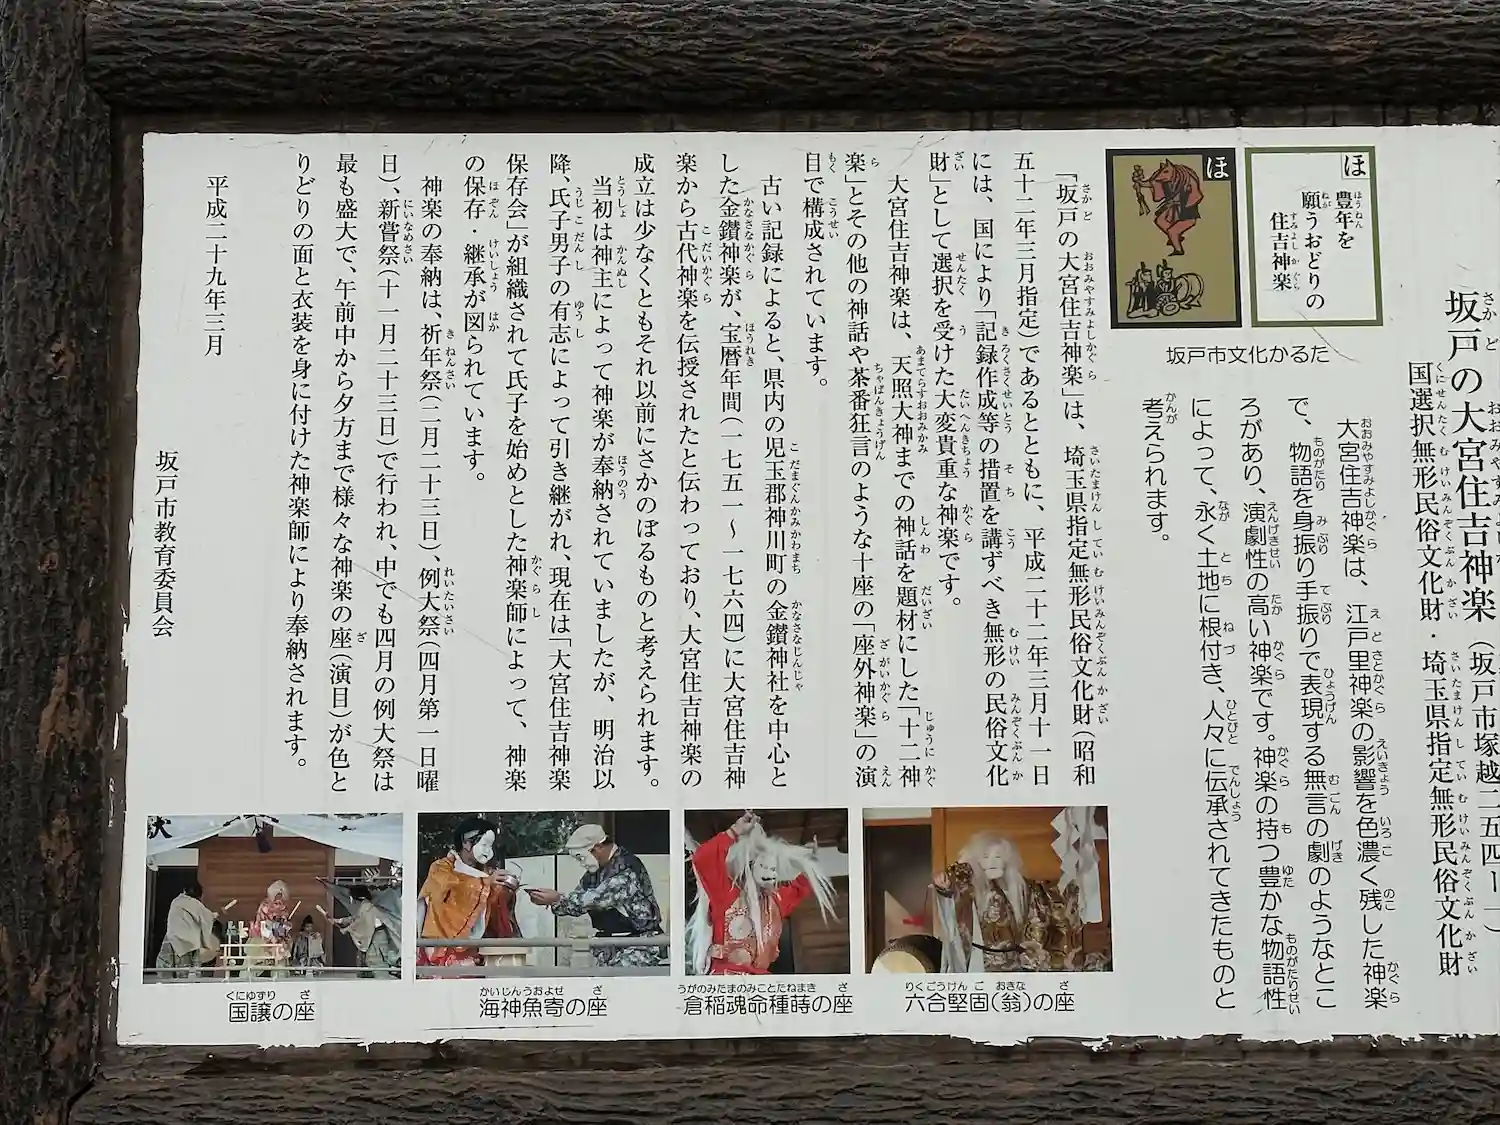 坂戸の大宮住吉神楽(坂戸市塚越二五四−一)
国選択無形民俗文化財・埼玉県指定無形民俗文化財
ほ
豊年を
願うおどりの
住吉神楽
ほ
坂戸市文化かるた
大宮住吉神楽は、江戸里神楽の影響を色濃く残した神楽
で、物語を身振り手振りで表現する無言の劇のようなとこ
ろがあり、演劇性の高い神楽です。神楽の持つ豊かな物語性
によって、永く土地に根付き、人々に伝承されてきたものと
考えられます。
「坂戸の大宮住吉神楽」は、埼玉県指定無形民俗文化財(昭和
五十二年三月指定)であるとともに、平成二十二年三月十一日
には、国により「記録作成等の措置を講ずべき無形の民俗文化
財」として選択を受けた大変貴重な神楽です。
大宮住吉神楽は、天照大神までの神話を題材にした「十二神
楽」とその他の神話や茶番狂言のような十座の「座外神楽」の演
目で構成されています。
古い記録によると、県内の児玉郡神川町の金鑚神社を中心と
した金鑚神楽が、宝暦年間(一七五一〜一七六四)に大宮住吉神
楽から古代神楽を伝授されたと伝わっており、大宮住吉神楽の
成立は少なくともそれ以前にさかのぼるものと考えられます。
当初は神主によって神楽が奉納されていましたが、明治以
降、氏子男子の有志によって引き継がれ、現在は「大宮住吉神楽
保存会」が組織されて氏子を始めとした神楽師によって、神楽
の保存・継承が図られています。
神楽の奉納は、祈年祭(二月二十三日)、例大祭(四月第一日曜
日)、新嘗祭(十一月二十三日)で行われ、中でも四月の例大祭は
最も盛大で、午前中から夕方まで様々な神楽の座(演目)が色と
りどりの面と衣装を身に付けた神楽師により奉納されます。
平成二十九年三月
坂戸市教育委員会
国譲の座
海神魚寄の座
倉稲魂命種蒔の座
六合堅固(翁)の座